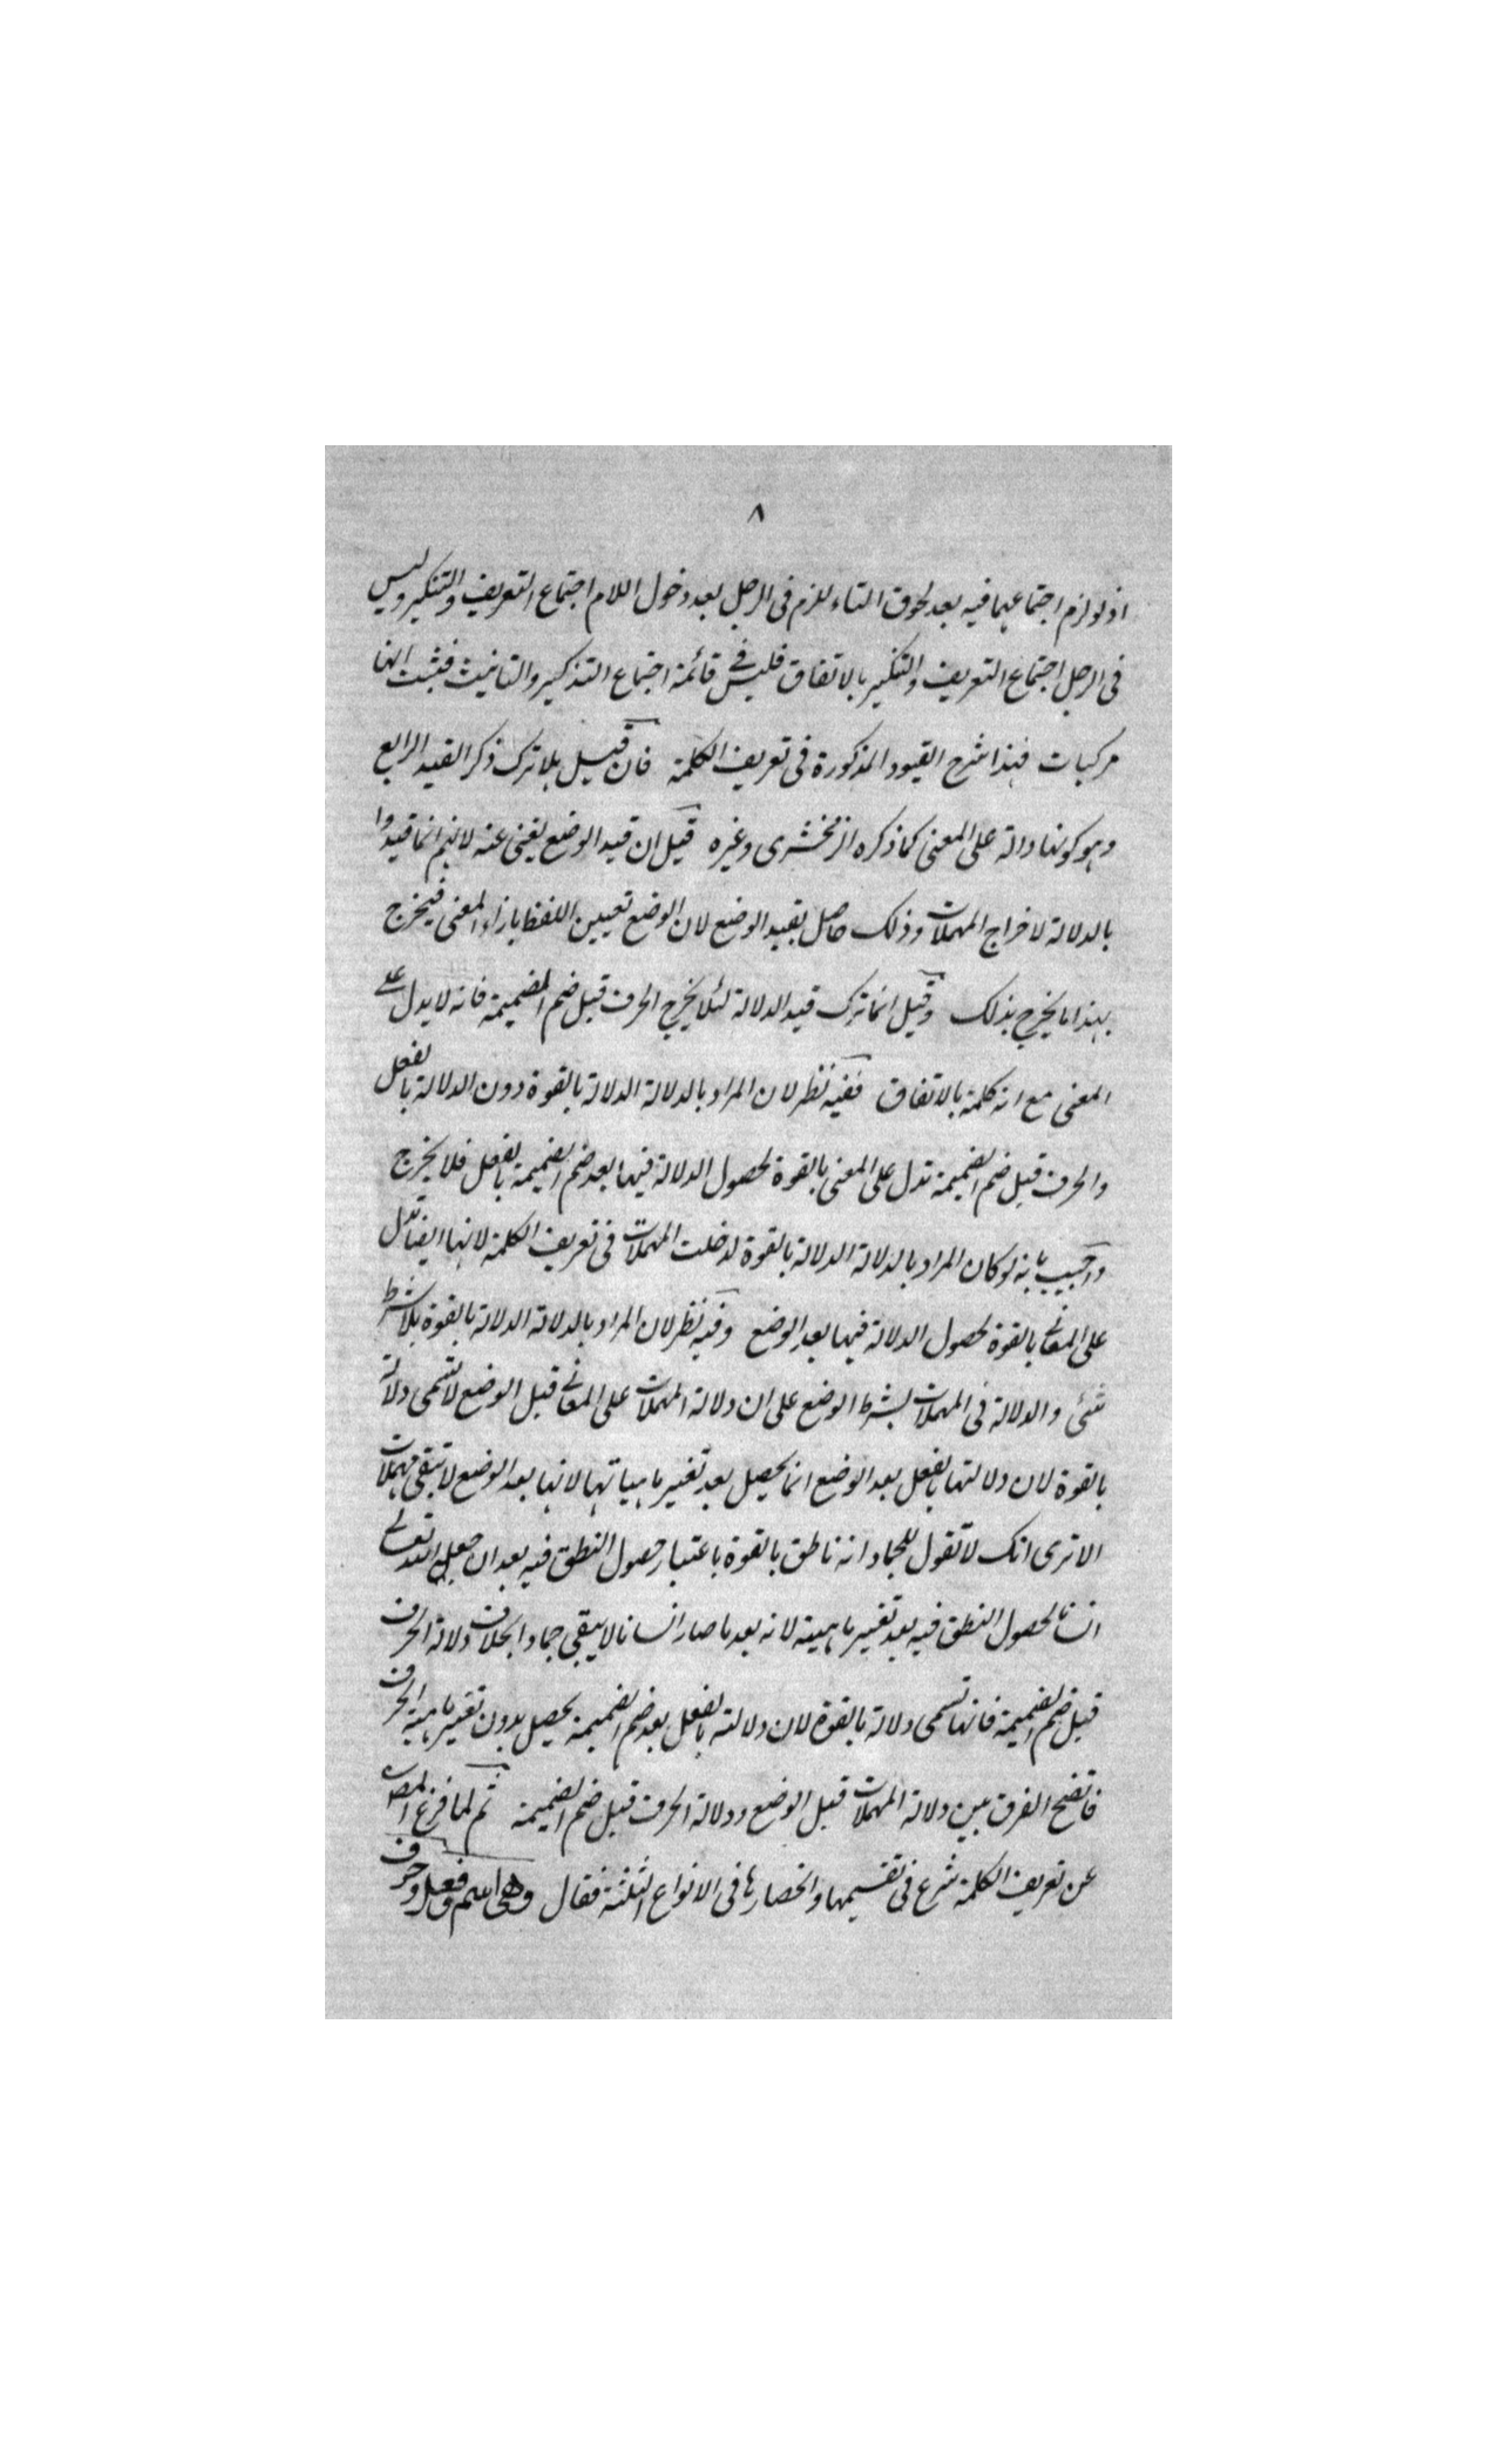 ٨
اذ لو لزم اجتماعهما فيه بعد لحوق التاء للزم فى الرجل بعد دخول اللام اجتماع التعريف والتنكير وليس
فى الرجل اجتماع التعريف والتنكير بالاتفاق فليس فى قائمة اجتماع التذكير والتانيث فثبت انها
مركبات فهذا شرح القيود المذكورة فى تعريف الكلمة فان قيل هلا ترك ذكر القيد الرابع
وهو كونها دالة على المعنى كما ذكره الزمخشرى وغيره قيل ان قيد الوضع يغنى عنه لانهم انما قيدوا
بالدلالة لاخراج المهملات وذلك حاصل بقيد الوضع لان الوضع تعيين اللفظ بازاء المعنى فيخرج
بهذا ما يخرج بذلك وقيل انما ترك قيد الدلالة لئلا يخرج الحرف قبل ضم الضميمة فانه لا يدل على
المعنى مع انه كلمة بالاتفاق ففيه نظر لان المراد بالدلالة الدلالة بالقوة دون الدلالة بالفعل
والحرف قبل ضم الضميمة تدل على المعنى بالقوة لحصول الدلالة فيها بعد ضم الضميمة بالفعل فلا يخرج
واجيب بانه لو كان المراد بالدلالة الدلالة بالقوة لدخلت المهملات فى تعريف الكلمة لانها ايضا تدل
على المعانى بالقوة لحصول الدلالة فيها بعد الوضع وفيه نظر لان المراد بالدلالة الدلالة بالقوة بلا شرط
شئ والدلالة فى المهملات بشرط الوضع على ان دلالة المهملات على المعانى قبل الوضع لا تسمى دلالة
بالقوة لان دلالتها بالفعل بعد الوضع انما يحصل بعد تغيير ماهياتها لانها بعد الوضع لا تبقى مهملات
الا ترى انك لا تقول للجماد انه ناطق بالقوة باعتبار حصول النطق فيه بعد ان جعل الله تعالى
انسانا لحصول النطق فيه بعد تغيير ماهيته لانه بعد ما صار انسانا لا يبقى جمادا بخلاف دلالة الحرف
قبل ضم الضميمة فانها تسمى دلالة بالقوة لان دلالته بالفعل بعد ضم الضميمة يحصل بدون تغيير ماهية الحرف
فاتضح الفرق بين دلالة المهملات قبل الوضع ودلالة الحرف قبل ضم الضميمة ثم لما فرغ المص
عن تعريف الكلمة شرع فى تقسيمها وانحصارها فى الانواع الثلثة فقال وهى اسم وفعل وحرف